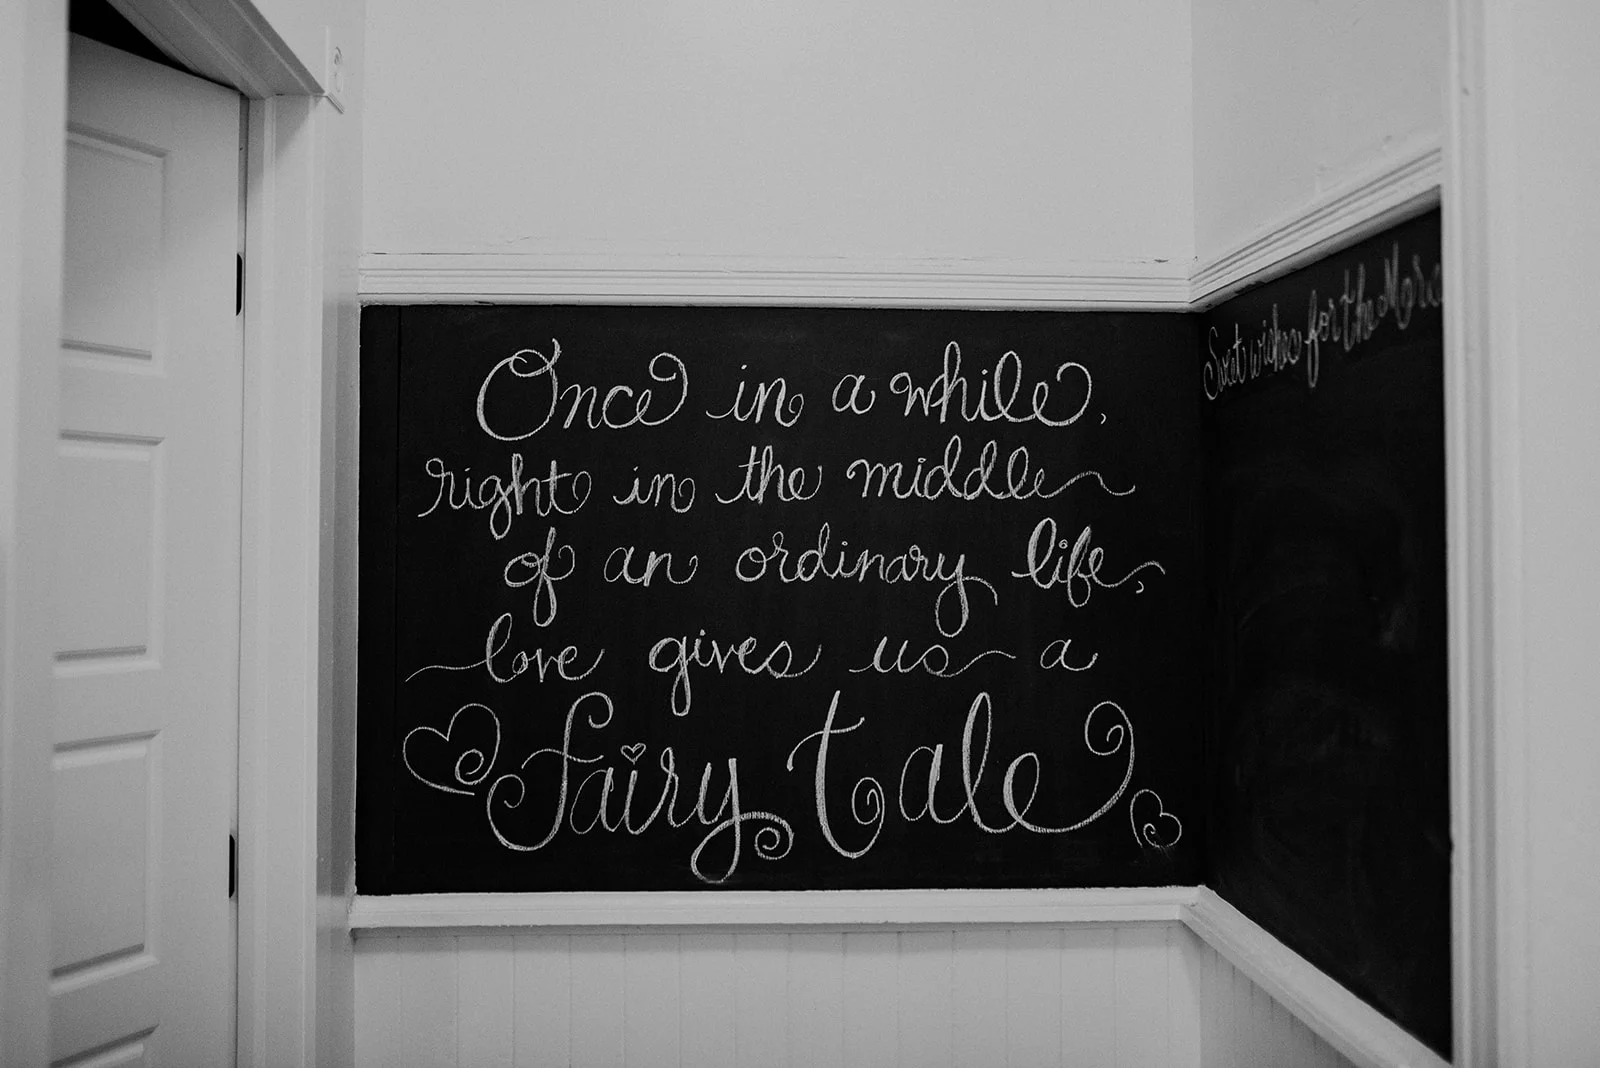 Once in a while,
right in the middle
of an ordinary life,
love gives us a
fairy tale
Sweet wishes for the